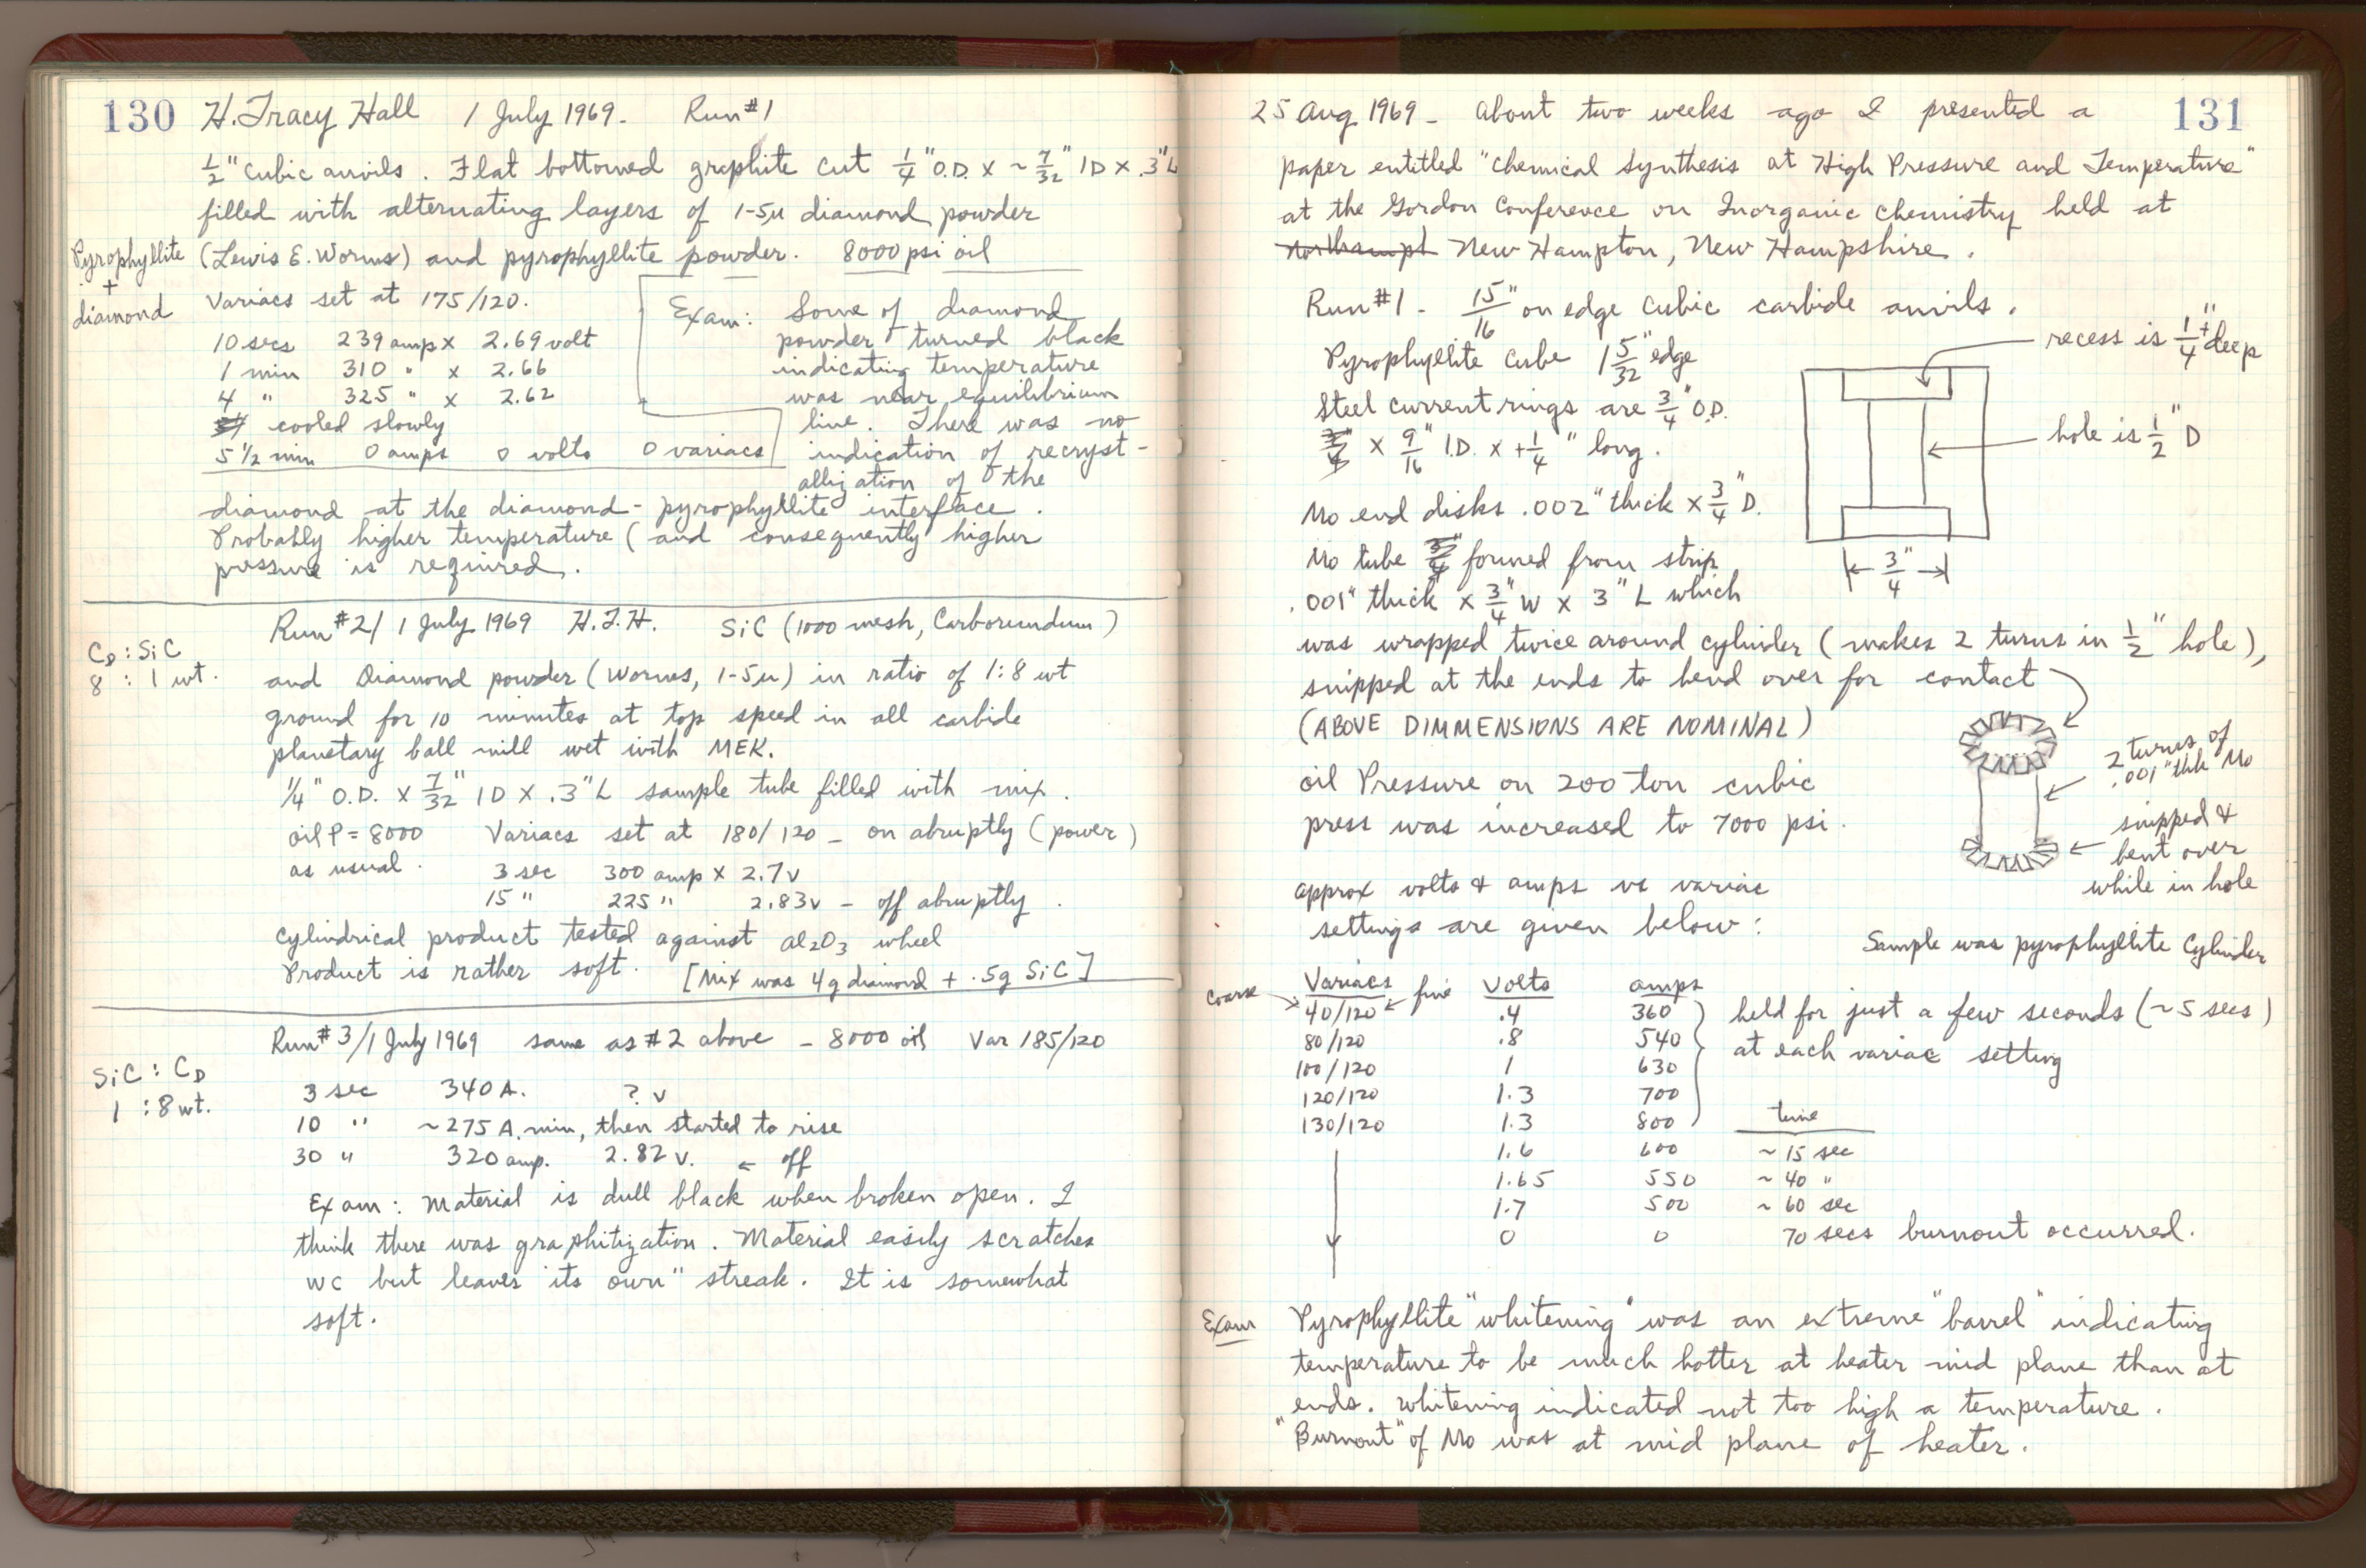 130 H. Tracy Hall 1 July 1969. Run #1
1/2" cubic anvils. Flat bottomed graphite cut 1/4" O.D. x ~ 7/32" ID x .3" L
filled with alternating layers of 1-5µ diamond powder
Pyrophyllite + diamond
(Lewis E. Worms) and pyrophyllite powder. 8000 psi oil
Variacs set at 175/120.
10 secs 239 amp x 2.69 volt
1 min 310 " x 2.66
4 " 325 " x 2.62
cooled slowly
5 1/2 min 0 amps 0 volts 0 variacs
Exam: Some of diamond
powder turned black
indicating temperature
was near equilibrium
line. There was no
indication of recryst-
allization of the
diamond at the diamond-pyrophyllite interface.
Probably higher temperature (and consequently higher
pressure is required.
Run #2/ 1 July 1969 H.T.H. SiC (1000 mesh, Carborundum)
CD : SiC
8 : 1 wt.
and Diamond powder (Worms, 1-5µ) in ratio of 1:8 wt
ground for 10 minutes at top speed in all carbide
planetary ball mill wet with MEK.
1/4" O.D. x 7/32" ID x .3" L sample tube filled with mix.
oil P = 8000 Variacs set at 180/120 - on abruptly (power)
as usual. 3 sec 300 amp x 2.7 v
15 " 225 " 2.83 v - off abruptly.
Cylindrical product tested against Al2O3 wheel
Product is rather soft. [Mix was 4g diamond + .5g SiC]
Run #3/1 July 1969 same as #2 above - 8000 oil Var 185/120
SiC : CD
1 : 8 wt.
3 sec 340 A. ? v
10 " ~275 A. min, then started to rise
30 " 320 amp. 2.82 v. ← off
Exam: Material is dull black when broken open. I
think there was graphitization. Material easily scratches
WC but leaves "its own" streak. It is somewhat
soft.
25 Aug 1969 - About two weeks ago I presented a 131
paper entitled "Chemical Synthesis at High Pressure and Temperature"
at the Gordon Conference on Inorganic Chemistry held at
Northampt New Hampton, New Hampshire.
Run #1 - 15/16" on edge cubic carbide anvils.
Pyrophyllite Cube 1 5/32" edge
Steel current rings are 3/4" O.D.
x 9/16" I.D. x + 1/4" long.
Mo end disks .002" thick x 3/4" D.
Mo tube 3/4" formed from strip
.001" thick x 3/4" W x 3" L which
recess is 1/4"+ deep
hole is 1/2" D
3/4"
was wrapped twice around cylinder (makes 2 turns in 1/2" hole),
snipped at the ends to bend over for contact
(ABOVE DIMMENSIONS ARE NOMINAL)
oil Pressure on 200 ton cubic
press was increased to 7000 psi.
2 turns of
.001" thk Mo
snipped &
bent over
while in hole
approx volts & amps vs variac
settings are given below:
Sample was pyrophyllite Cylinder
coarse Variacs fine Volts amps
40/120 .4 360
80/120 .8 540
100/120 1 630
120/120 1.3 700
130/120 1.3 800
held for just a few seconds (~5 secs)
at each variac setting
time
1.6 600 ~15 sec
1.65 550 ~40 "
1.7 500 ~60 sec
0 0 70 secs burnout occurred.
Exam Pyrophyllite "whitening" was an extreme "barrel" indicating
temperature to be much hotter at heater mid plane than at
ends. Whitening indicated not too high a temperature.
"Burnout" of Mo was at mid plane of heater.